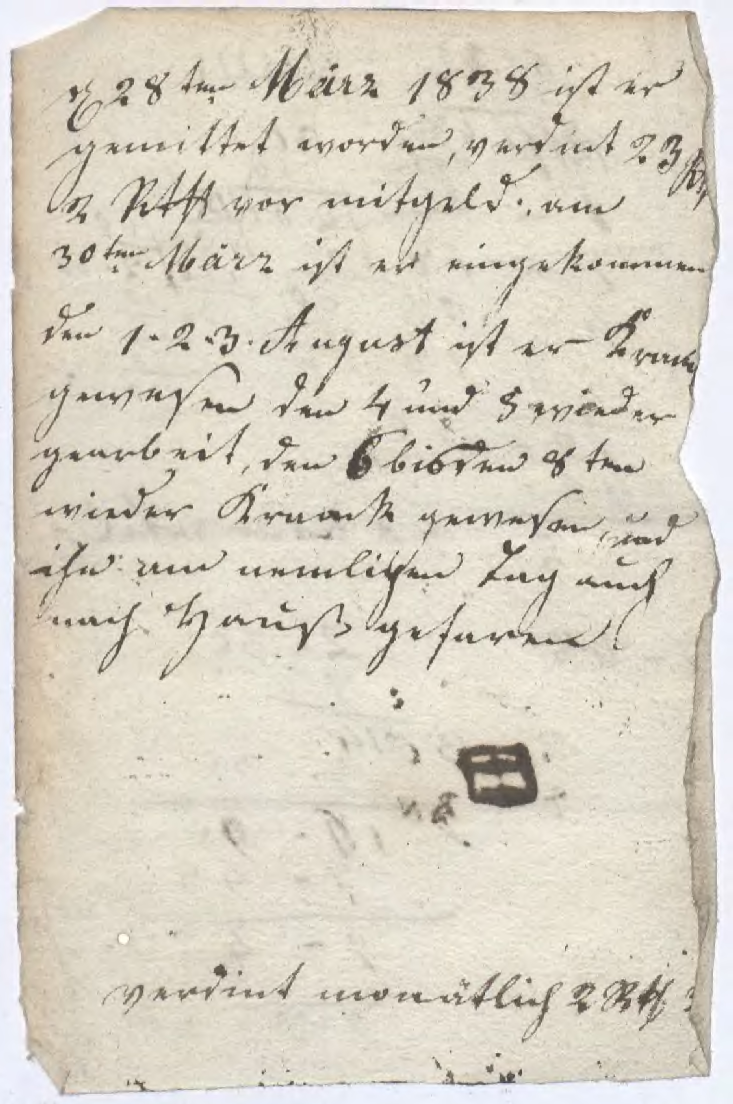 d 28ten März 1838 ist er
gemittet worden, verdint 23
2 Rth vor mitgeld., am
30ten März ist er eingekommen
den 1. 2. 3. August ist er Kranck
gewesen den 4 und 5 wieder
gearbeit, den 6 bis den 8 ten
wieder Kranck gewesen und
ihn am nemlichen Tag auch
nach Hauß gefaren.
verdint monätlich 2 Rth